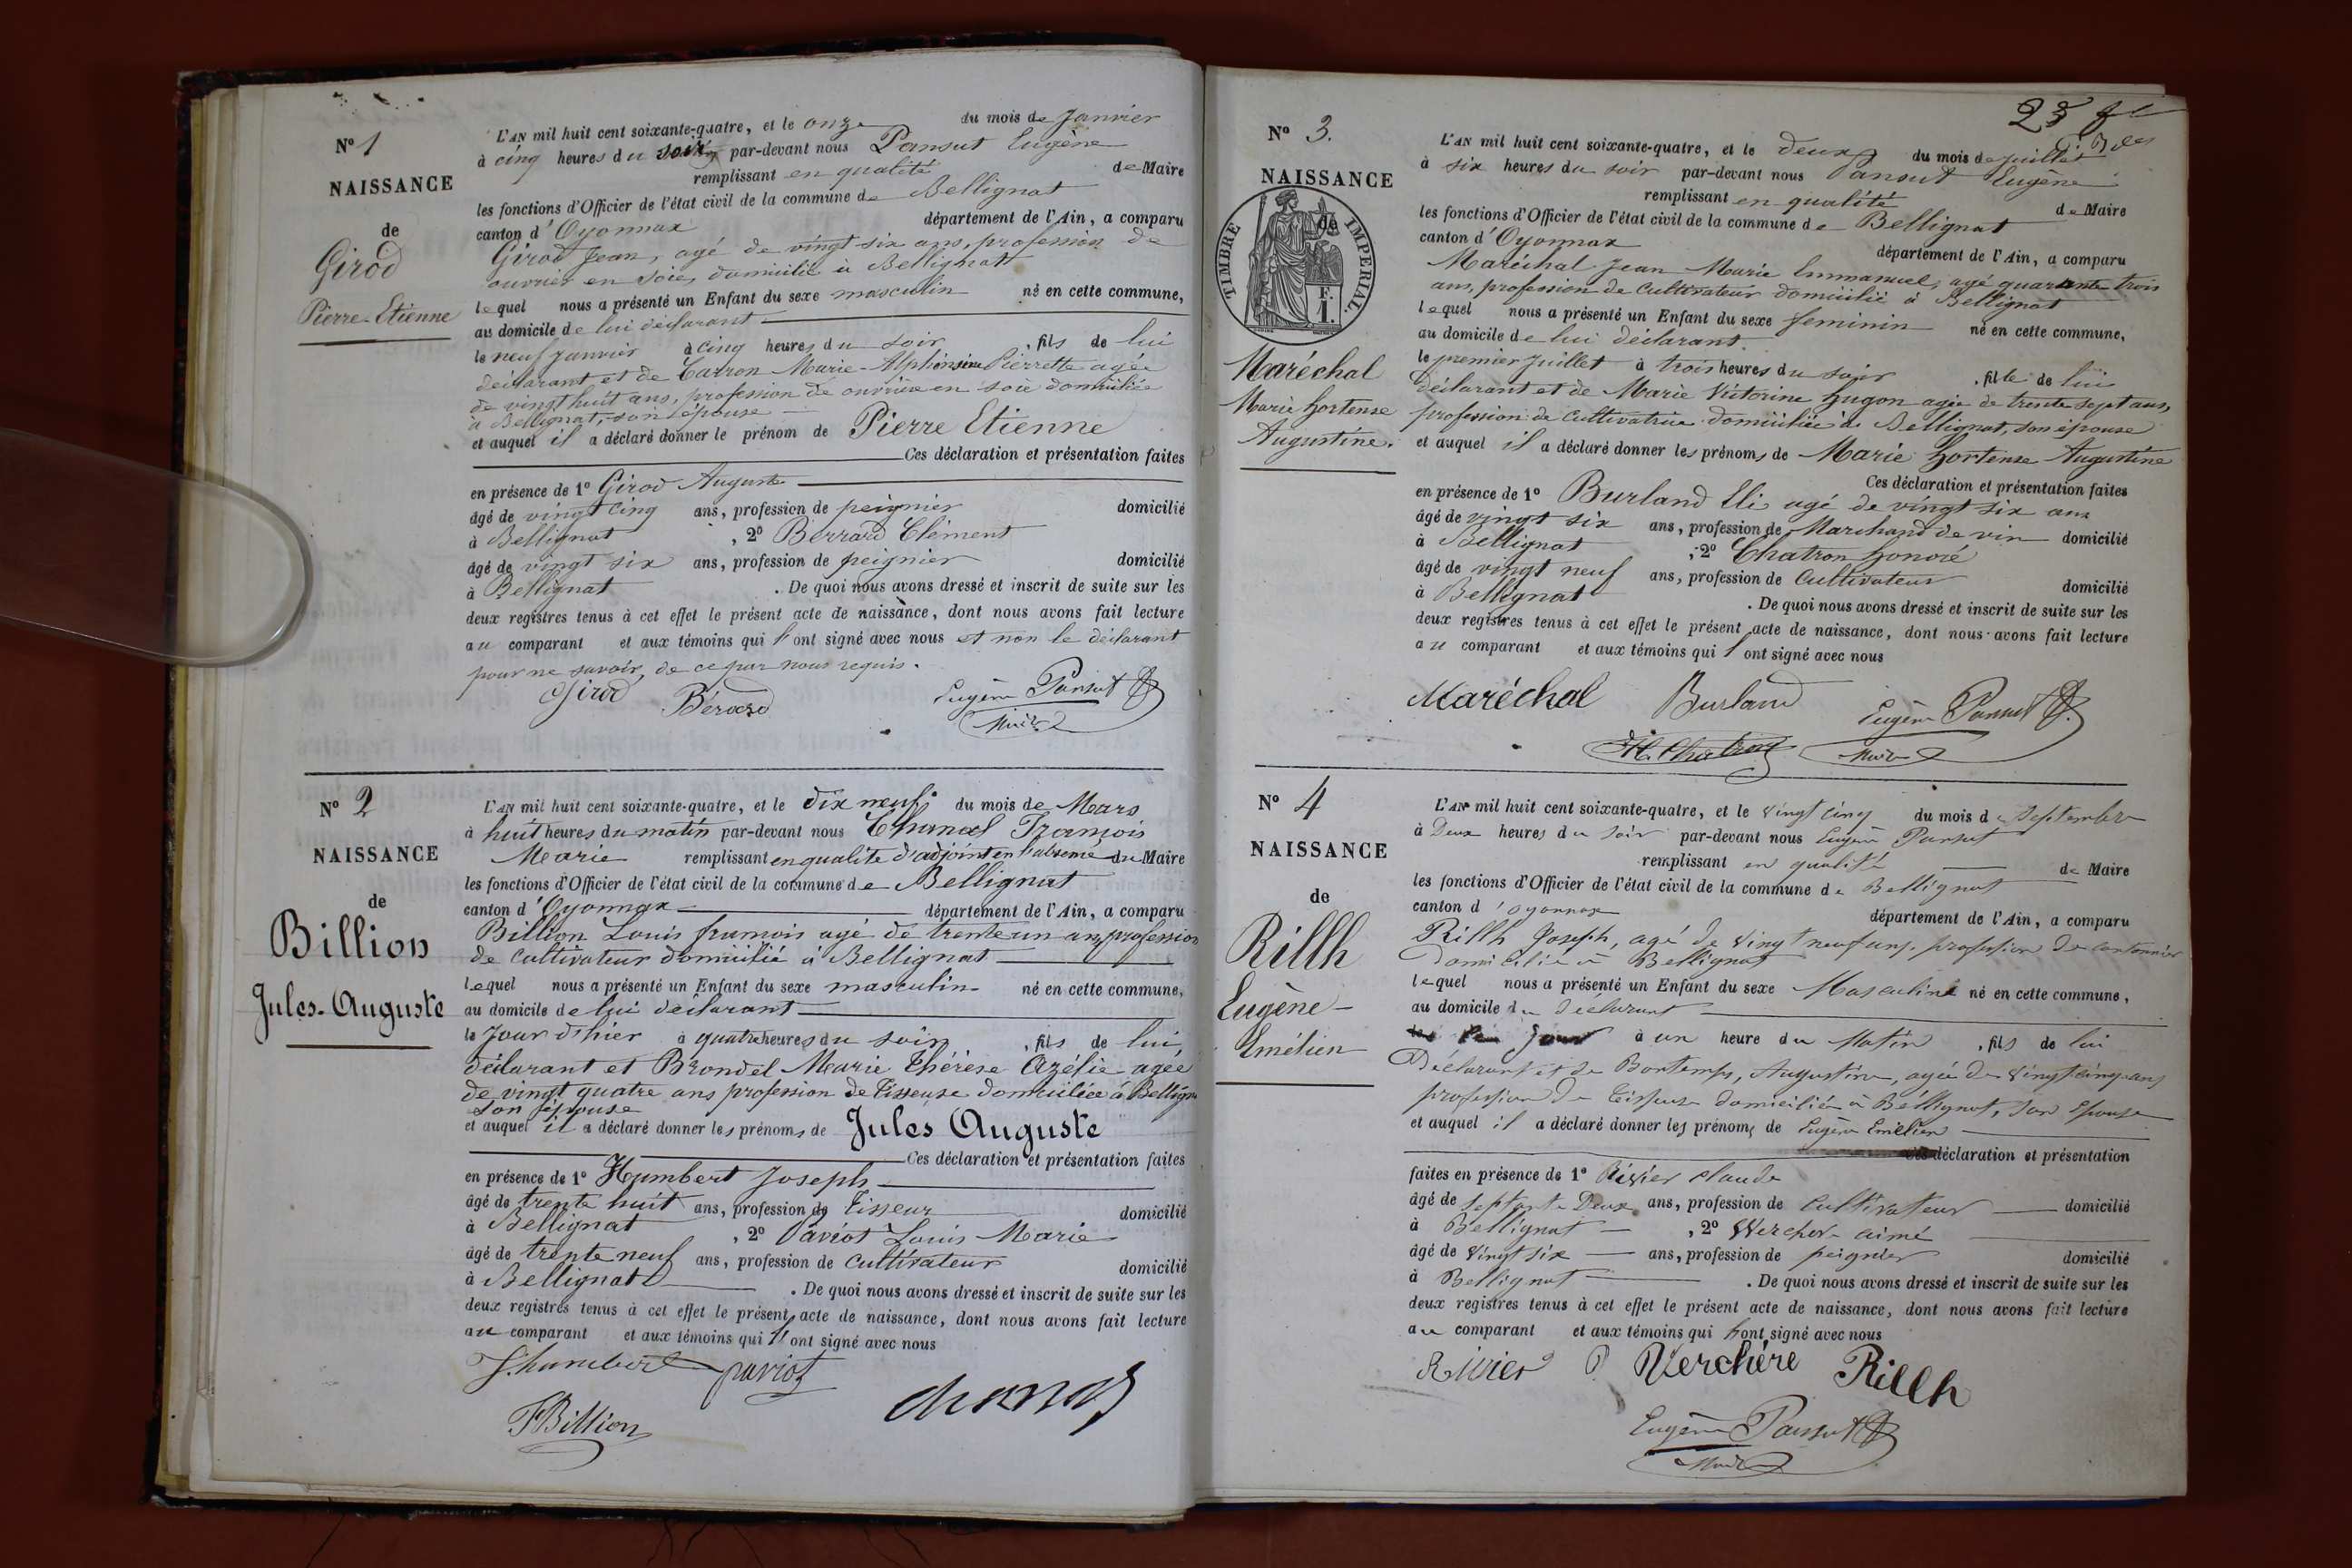 Nº 1
NAISSANCE
de
Girod
Pierre-Etienne
L'AN mil huit cent soixante-quatre, et le onze du mois de Janvier
à cinq heures du soir, par-devant nous Pansut Eugène
remplissant en qualité de Maire
les fonctions d'Officier de l'état civil de la commune de Bellignat
canton d'Oyonnax département de l'Ain, a comparu
Girod Jean, agé de vingt six ans, profession de
ouvrier en soie, domicilié à Bellignat
lequel nous a présenté un Enfant du sexe masculin né en cette commune,
au domicile de lui déclarant
le neuf Janvier à cinq heures du soir, fils de lui
déclarant et de Carron Marie-Alphonsine Pierrette agée
de vingt huit ans, profession de ouvrière en soie domiciliée
à Bellignat, son épouse
et auquel il a déclaré donner le prénom de Pierre Etienne
Ces déclaration et présentation faites
en présence de 1º Girod Auguste
âgé de vingt cinq ans, profession de peignier domicilié
à Bellignat, 2º Berrard Clément
âgé de vingt six ans, profession de peignier domicilié
à Bellignat. De quoi nous avons dressé et inscrit de suite sur les
deux registres tenus à cet effet le présent acte de naissance, dont nous avons fait lecture
au comparant et aux témoins qui l'ont signé avec nous et non le déclarant
pour ne savoir, de ce par nous requis.
Girod Bérard Eugène Pansut
Maire
Nº 2
NAISSANCE
de
Billion
Jules-Auguste
L'AN mil huit cent soixante-quatre, et le dix neuf du mois de Mars
à huit heures du matin par-devant nous Chanal François
Marie remplissant en qualité d'adjoint en l'absence du Maire
les fonctions d'Officier de l'état civil de la commune de Bellignat
canton d'Oyonnax département de l'Ain, a comparu
Billion Louis françois agé de trente un ans, profession
de cultivateur domicilié à Bellignat
lequel nous a présenté un Enfant du sexe masculin né en cette commune,
au domicile de lui déclarant
le Jour d'hier à quatre heures du soir, fils de lui,
déclarant et Brondel Marie Thérèse Azélie agée
de vingt quatre ans profession de Tisseuse domiciliée à Bellign
son épouse
et auquel il a déclaré donner les prénoms de Jules Auguste
Ces déclaration et présentation faites
en présence de 1º Humbert Joseph
âgé de trente huit ans, profession de Tisseur domicilié
à Bellignat, 2º Paviot Louis Marie
âgé de trente neuf ans, profession de cultivateur domicilié
à Bellignat. De quoi nous avons dressé et inscrit de suite sur les
deux registres tenus à cet effet le présent acte de naissance, dont nous avons fait lecture
au comparant et aux témoins qui l'ont signé avec nous
J. humbert paviot
FBillion chanal
23
Nº 3.
NAISSANCE
de
TIMBRE IMPERIAL.
F.
1.
Maréchal
Marie Hortense
Augustine.
L'AN mil huit cent soixante-quatre, et le deux du mois de juillet
à six heures du soir par-devant nous Pansut Eugène
remplissant en qualité de Maire
les fonctions d'Officier de l'état civil de la commune de Bellignat
canton d'Oyonnax département de l'Ain, a comparu
Maréchal Jean Marie Emmanuel, agé quarante trois
ans, profession de Cultivateur domicilié à Bellignat
lequel nous a présenté un Enfant du sexe feminin né en cette commune,
au domicile de lui déclarant.
le premier Juillet à trois heures du soir, fille de lui
déclarant et de Marie Victorine Hugon agée de trente sept ans,
profession de cultivatrice domiciliée à Bellignat, son épouse
et auquel il a déclaré donner les prénoms de Marie Hortense Augustine
Ces déclaration et présentation faites
en présence de 1º Burland Eli agé de vingt six ans
âgé de vingt six ans, profession de Marchand de vin domicilié
à Bellignat, 2º Chatron honoré
âgé de vingt neuf ans, profession de Cultivateur domicilié
à Bellignat. De quoi nous avons dressé et inscrit de suite sur les
deux registres tenus à cet effet le présent acte de naissance, dont nous avons fait lecture
au comparant et aux témoins qui l'ont signé avec nous
Maréchal Burland Eugène Pansut
H. Chatron Maire
Nº 4
NAISSANCE
de
Rillh
Eugène-
Emélien
L'AN mil huit cent soixante-quatre, et le vingt cinq du mois de Septembre
à Deux heures du soir par-devant nous Eugène Pansut
remplissant en qualité de Maire
les fonctions d'Officier de l'état civil de la commune de Bellignat
canton d'oyonnax département de l'Ain, a comparu
Rillh Joseph, agé de vingt neuf ans, profession de cantonnier
domicilié à Bellignat
lequel nous a présenté un Enfant du sexe Masculin né en cette commune,
au domicile du déclarant
jour à un heure du Matin, fils de lui
Déclarant et de Bontemps, Augustine, agée de vingt cinq ans
profession de Tisseuse domiciliée à Bellignat, son Epouse
et auquel il a déclaré donner les prénoms de Eugène Emélien
Ces déclaration et présentation
faites en présence de 1º Rivier claude
âgé de septante Deux ans, profession de cultivateur domicilié
à Bellignat, 2º Vercher aimé
âgé de vingt six ans, profession de peignier domicilié
à Bellignat. De quoi nous avons dressé et inscrit de suite sur les
deux registres tenus à cet effet le présent acte de naissance, dont nous avons fait lecture
au comparant et aux témoins qui l'ont signé avec nous
Rivier Verchère Rillh
Eugène Pansut
Maire